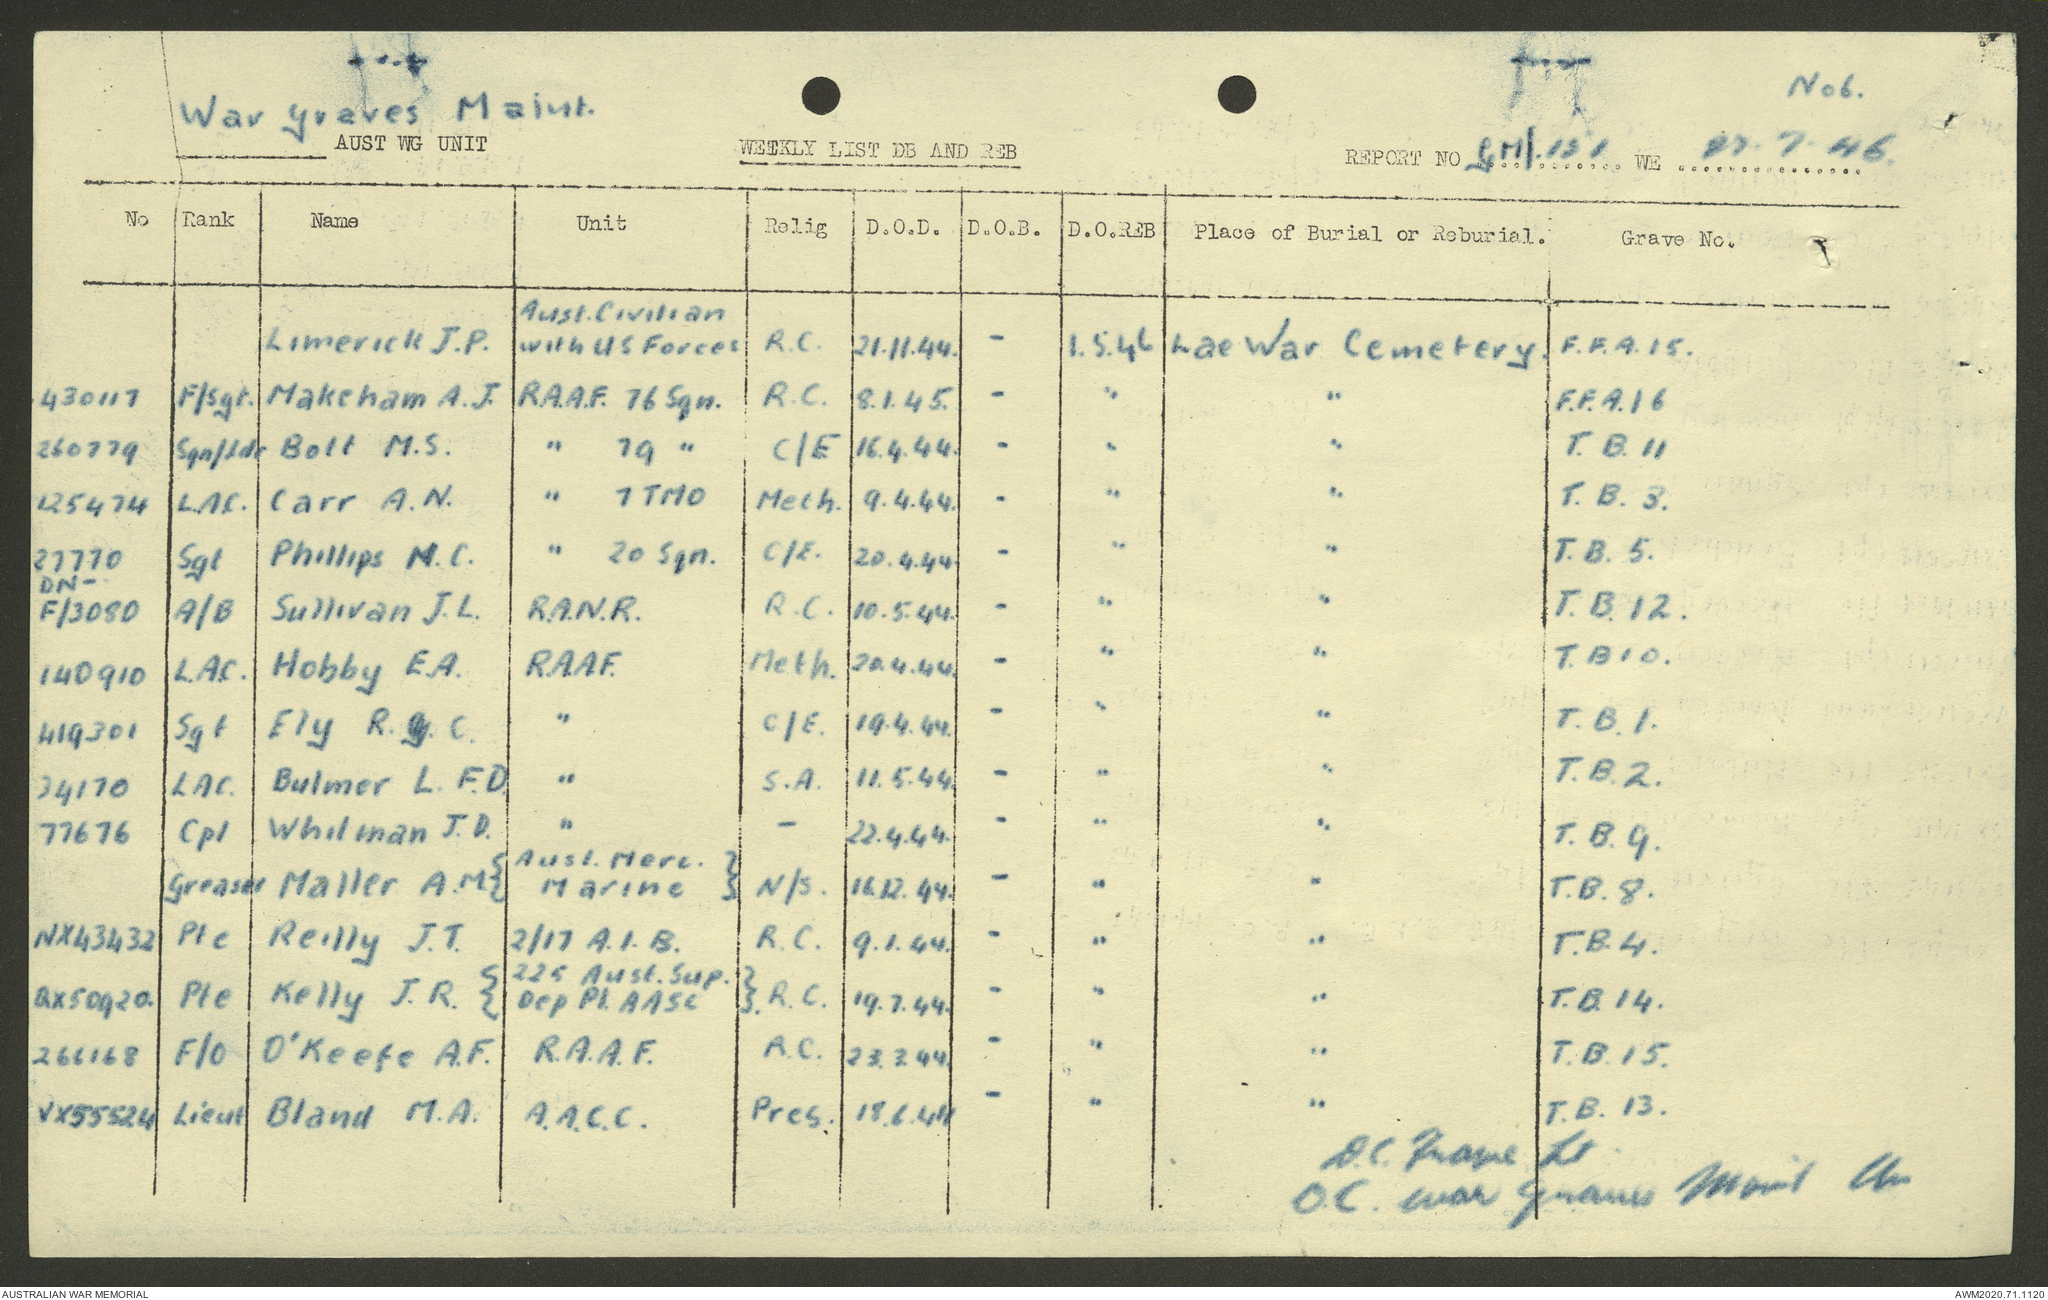 No 6.
War graves Maint.
AUST WG UNIT WEEKLY LIST DB AND REB REPORT NO GM/.151. WE 27.7.46.
No Rank Name Unit Relig D.O.D. D.O.B. D.O.REB Place of Burial or Reburial. Grave No.
Aust. Civilian
Limerick J.P. with US Forces R.C. 21.11.44. - 1.5.46 Lae War Cemetery. F.F.A.15.
430117 F/Sgt. Makeham A.J. R.A.A.F. 76 Sqn. R.C. 8.1.45. - " " F.F.A.16
260779 Sqn/Ldr Bott M.S. " 79 " C/E 16.4.44. - " " T.B.11
125474 L.A.C. Carr A.N. " 7 TMO Meth. 9.4.44. - " " T.B.3.
27770 Sgt Phillips N.C. " 20 Sqn. C/E. 20.4.44. - " " T.B.5.
DN-
F/3080 A/B Sullivan J.L. R.A.N.R. R.C. 10.5.44. - " " T.B.12.
140910 L.A.C. Hobby E.A. R.A.A.F. Meth. 20.4.44. - " " T.B10.
419301 Sgt Ely R.G.C. " C/E. 19.4.44. - " " T.B.1.
34170 LAC. Bulmer L.F.D. " S.A. 11.5.44. - " " T.B.2.
77676 Cpl Whilman J.D. " - 22.4.44. - " " T.B.9.
Aust. Merc.
Greaser Maller A.M. { Marine } N/S. 16.12.44. - " " T.B.8.
NX43432 Pte Reilly J.T. 2/17 A.I.B. R.C. 9.1.44. - " " T.B.4.
225 Aust. Sup.
QX50920. Pte Kelly J.R. { Dep Pl. AASC } R.C. 19.7.44. - " " T.B.14.
266168 F/O O'Keefe A.F. R.A.A.F. R.C. 23.3.44. - " " T.B.15.
VX55524 Lieut Bland M.A. A.A.C.C. Pres. 18.6.44 - " " T.B.13.
D.C. Lt
O.C. war graves Maint Un
AUSTRALIAN WAR MEMORIAL AWM2020.71.1120